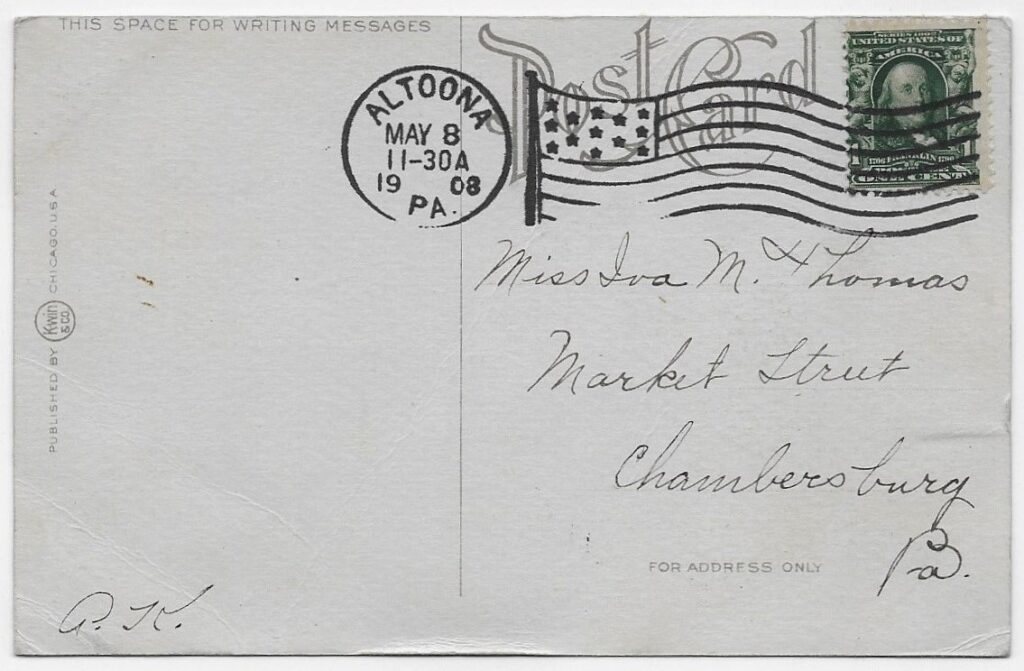 THIS SPACE FOR WRITING MESSAGES
Post Card
SERIES 1902
UNITED STATES OF
AMERICA
1706 FRANKLIN 1790
ONE CENT
ALTOONA
MAY 8
11-30A
19 08
PA.
Miss Iva M. Thomas
Market Street
Chambersburg
Pa.
FOR ADDRESS ONLY
PUBLISHED BY Kwin & CO. CHICAGO. U.S.A
A. K.